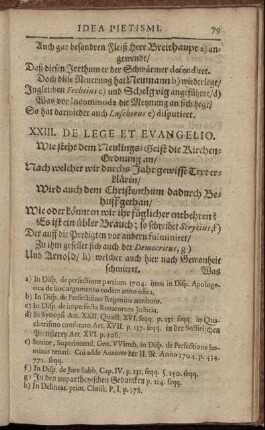 IDEA PIETISMI. 79
Auch gar besondren Fleiß Herr Breithaupt a) an-
gewendt/
Daß diesen Irrthum er der Schwärmer defendiret.
Doch diese Neuerung hat Neumann b) wiederlegt/
Ingleichen Fechtius c) und Schelgvig angeführt/ d)
Was vor Incommoda die Meynung an sich hegt/
So hat darwieder auch Loescherus e) disputirt.
XXIII. DE LEGE ET EVANGELIO.
Wie steht dem Neulings-Geist die Kirchen-
Ordnung an/
Nach welcher wir durchs Jahr gewisse Texte er-
klären/
Wird auch dem Christenthum dadurch Be-
huff gethan/
Wie oder könnten wir ihr füglicher entbehren?
Es ist ein übler Brauch; so schreibet Strykius, f)
Der auff die Predigten vor andern fulminiret/
Zu ihm gesellet sich auch der Democritus, g)
Und Arnold/ h) welcher auch hier nach Gewonheit
schmieret.
Was
a) In Disp. de perfectione partium 1704. item in Disp. Apologe-
tica de hoc argumento eodem anno edita.
b) In Disp. de Perfectionismo Regimini attributo.
c) In Disp. de imperfecta Renatorum Justitia.
d) In Synopsi Art. XXII. Quæst. XVI. seqq. p. 131. seqq. in Qua-
kerismo confutato Art. XVII. p. 137. seqq. in der Sectirischen
Pietisterey Art. XVI. p. 106.
e) Senior, Superintend. Gen. VVitteb. in Disp. de Perfectione ho-
minis renati. Cui adde Autores der U. N. Anno 1704. p. 434.
771. seqq.
f) In Disp. de Jure Sabb. Cap. IV. p. 131. seqq. §. 150. seqq.
g) In den unpartheyischen Gedancken p. 114. seqq.
h) In Delineat. prim. Christ. P. I. p. 178.